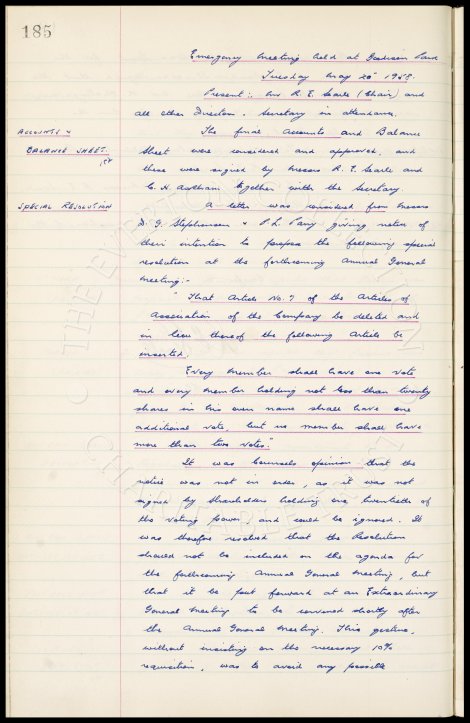 185
Emergency meeting held at Goodison Park
Tuesday May 20th 1958
Present:- Mr R. E. Searle (Chair) and
all other Directors. Secretary in attendance.
ACCOUNTS &
BALANCE SHEET.
The final Accounts and Balance
Sheet were considered and approved, and
these were signed by Messrs R. E. Searle and
C. H. Askham together with the Secretary.
SPECIAL RESOLUTION
A letter was received from Messrs
D. G. Stephenson & P. L. Parry giving notice of
their intention to propose the following special
resolution at the forthcoming Annual General
Meeting:-
"That Article No. 7 of the Articles of
Association of the Company be deleted and
in lieu thereof the following Article be
inserted.
Every member shall have one vote
and every member holding not less than twenty
shares in his own name shall have one
additional vote, but no member shall have
more than two votes."
It was Counsels opinion that the
notice was not in order, as it was not
signed by shareholders holding one twentieth of
the voting power, and could be ignored. It
was therefore resolved that the Resolution
should not be included on the agenda for
the forthcoming Annual General Meeting, but
that it be put forward at an Extraordinary
General Meeting to be convened shortly after
the Annual General Meeting. This gesture,
without insisting on the necessary 10%
requisition, was to avoid any possible
THE EVERTON